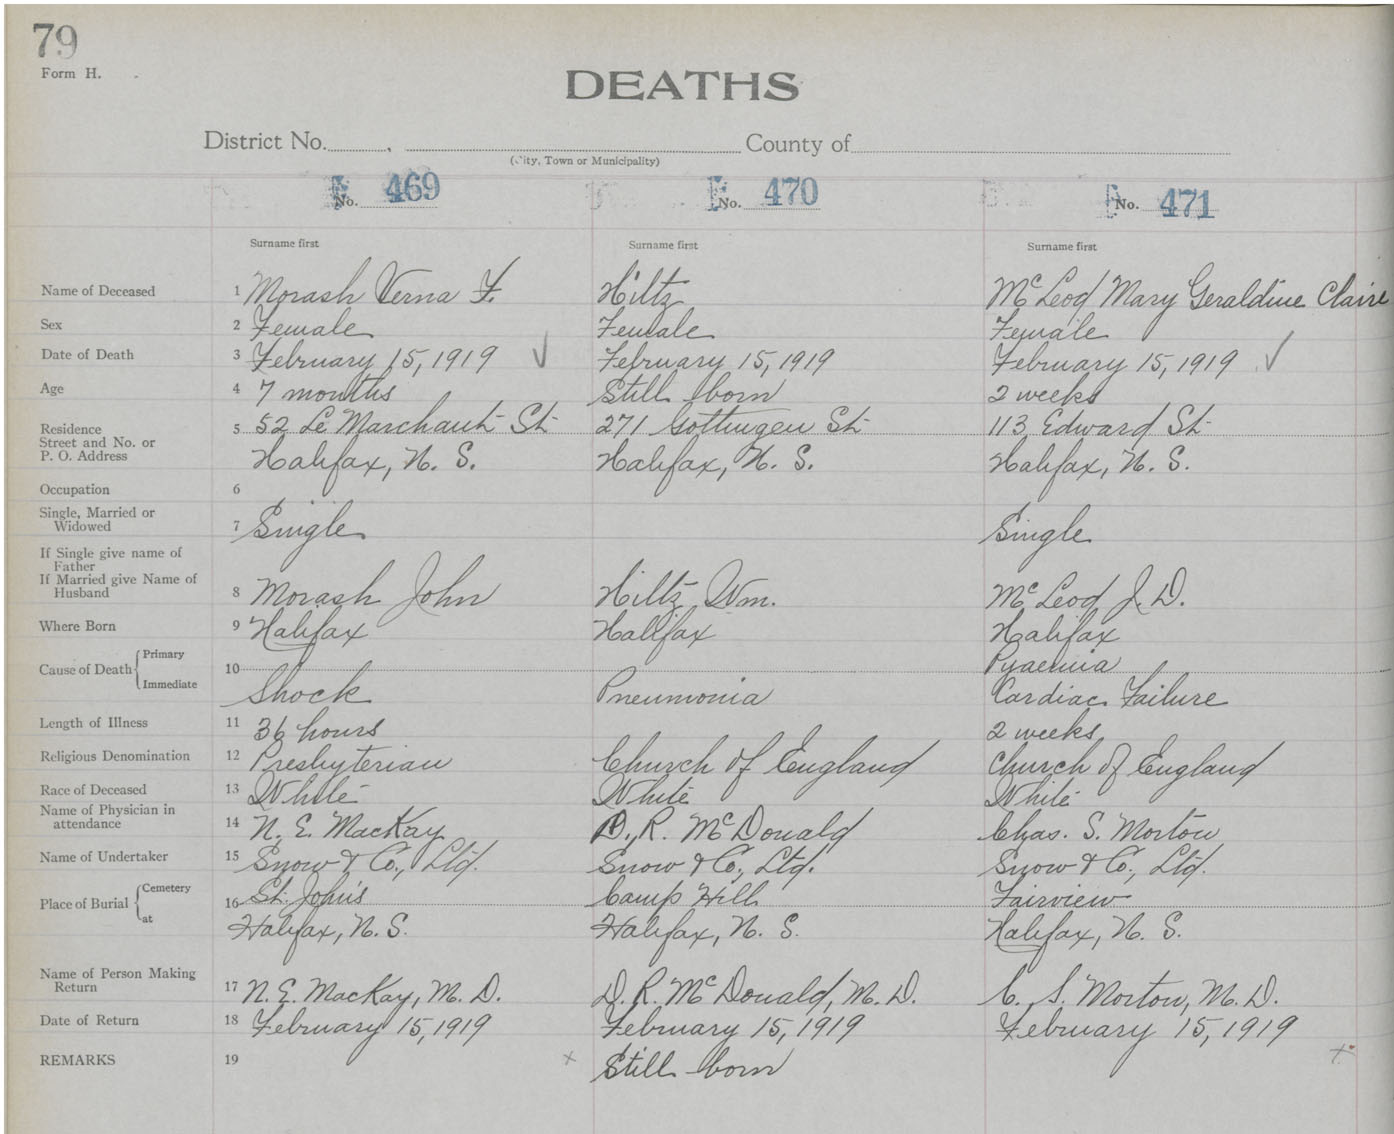 79
Form H.
DEATHS
District No. , County of
(City, Town or Municipality)
No. 469 No. 470 No. 471
Surname first Surname first Surname first
Name of Deceased 1 Morash Verna F. Hiltz McLeod Mary Geraldine Claire
Sex 2 Female Female Female
Date of Death 3 February 15, 1919 February 15, 1919 February 15, 1919
Age 4 7 months Still born 2 weeks
Residence
Street and No. or 5 52 Le Marchant St. 271 Gottingen St. 113 Edward St.
P. O. Address Halifax, N. S. Halifax, N. S. Halifax, N. S.
Occupation 6
Single, Married or
Widowed 7 Single Single
If Single give name of
Father
If Married give Name of
Husband 8 Morash John Hiltz Wm. McLeod J. D.
Where Born 9 Halifax Halifax Halifax
Primary Pyaemia
Cause of Death 10
Immediate Shock Pneumonia Cardiac Failure
Length of Illness 11 36 hours 2 weeks
Religious Denomination 12 Presbyterian Church of England Church of England
Race of Deceased 13 White White White
Name of Physician in
attendance 14 N. E. MacKay D. R. McDonald Chas. S. Morton
Name of Undertaker 15 Snow & Co., Ltd. Snow & Co., Ltd. Snow & Co., Ltd.
Cemetery St. John's Camp Hill Fairview
Place of Burial 16
at Halifax, N. S. Halifax, N. S. Halifax, N. S.
Name of Person Making
Return 17 N. E. MacKay, M. D. D. R. McDonald, M. D. C. S. Morton, M. D.
Date of Return 18 February 15, 1919 February 15, 1919 February 15, 1919
REMARKS 19 Still born